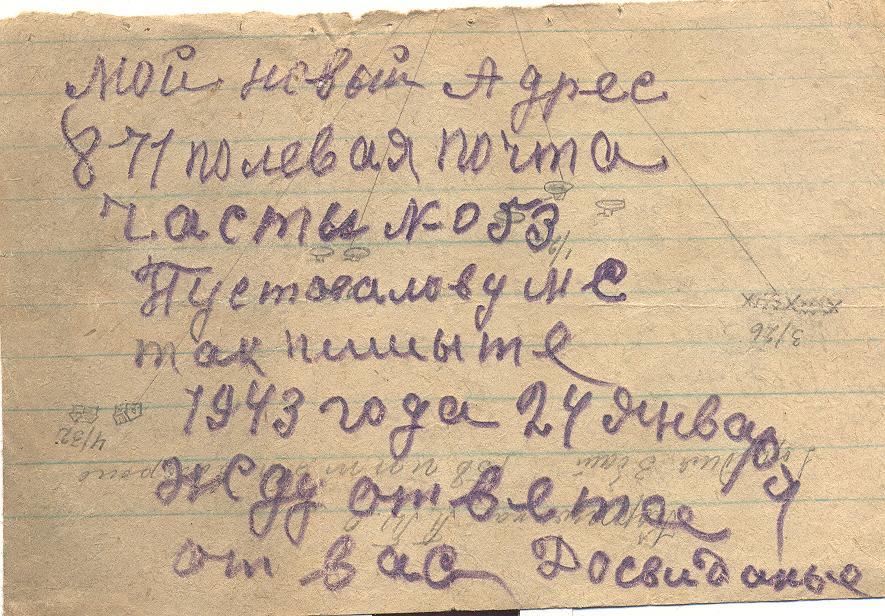 Мой новый Адрес
871 полевая почта
часты № 053
Пустовалову М С
так пишыте
1943 года 24 января
Жду ответа
от вас Досвиданье
3/26
4/32
1/2